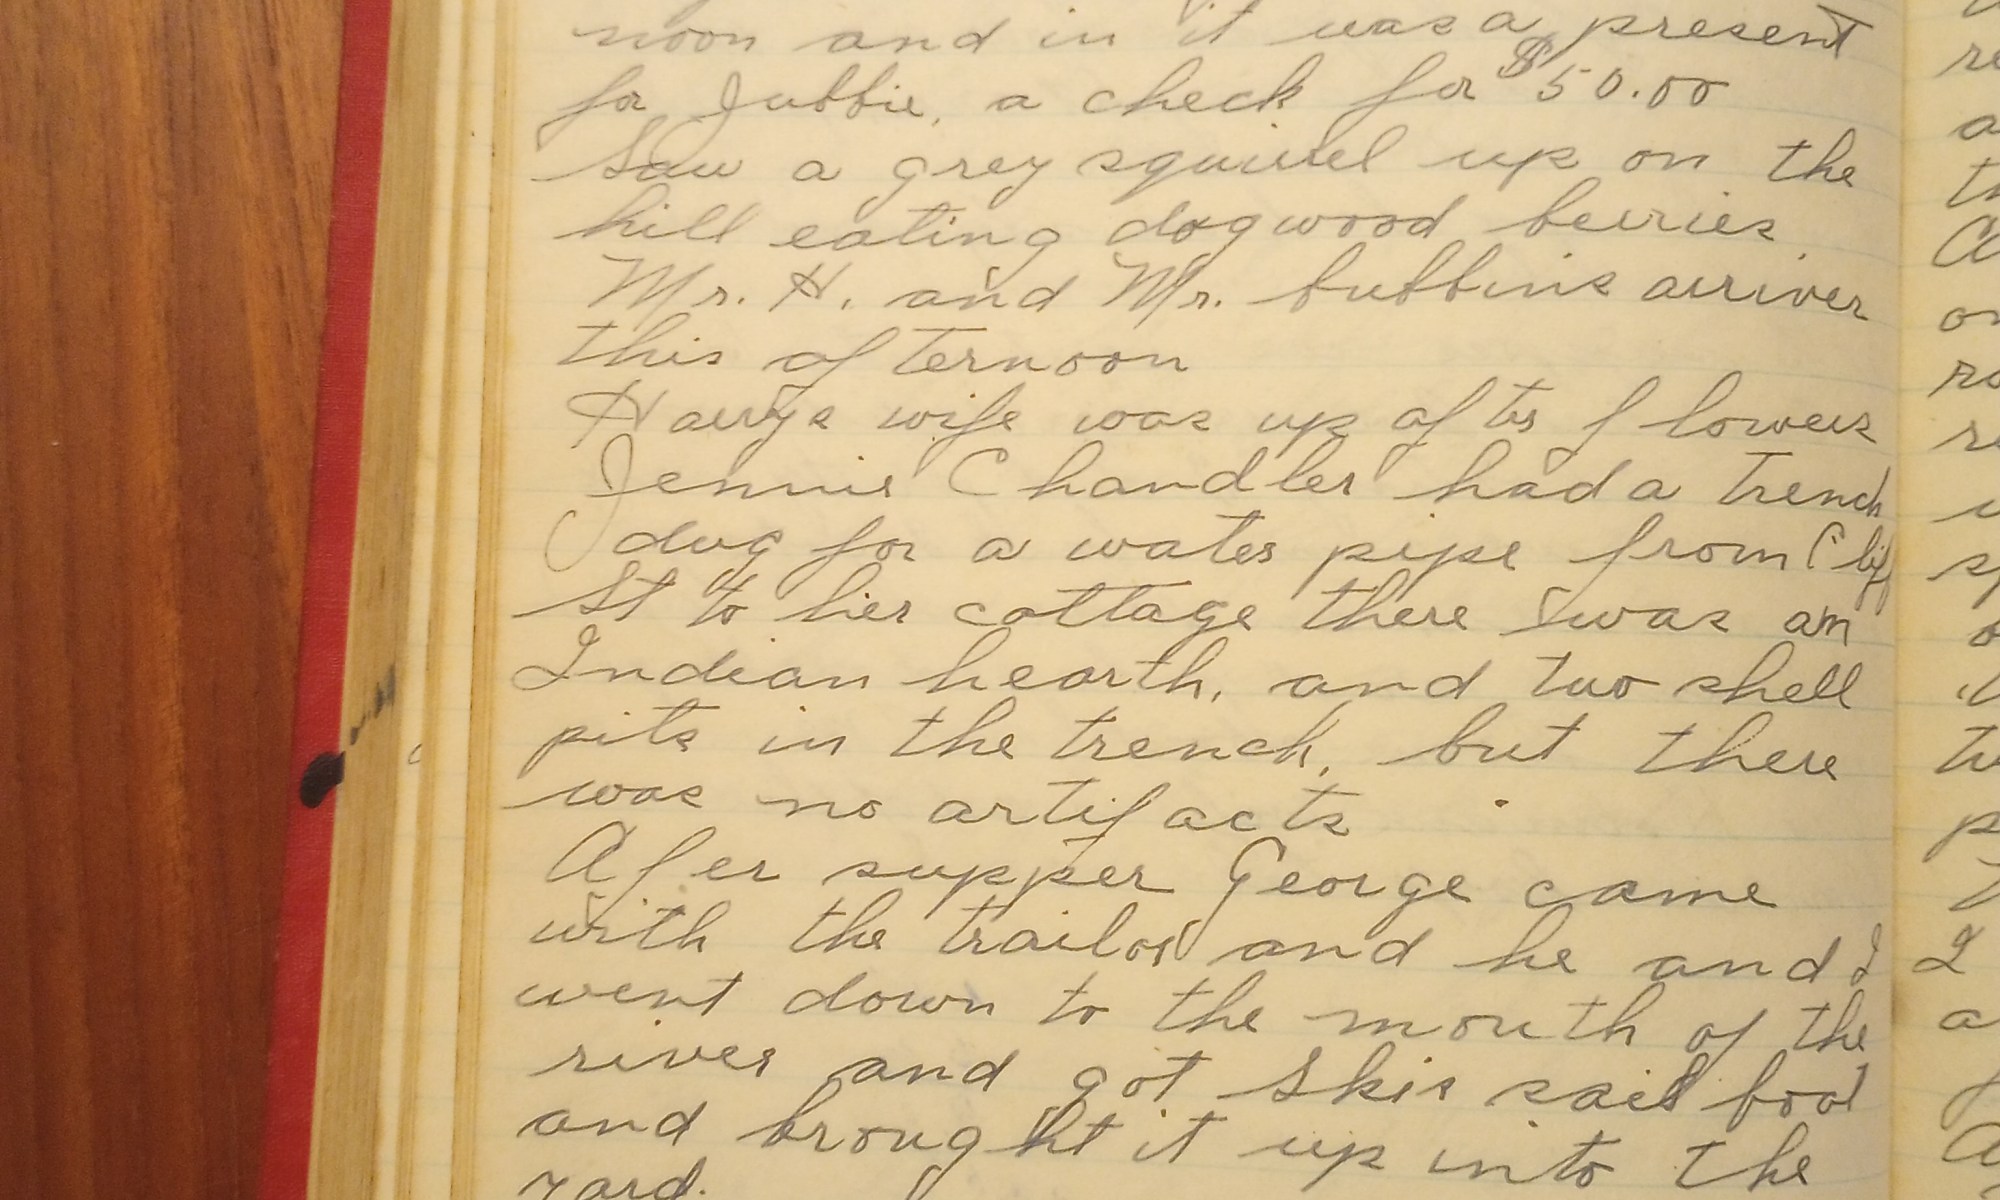 noon and in it was a present
for Jubbie, a check for $50.00
Saw a grey squirrel up on the
hill eating dogwood berries
Mr. H. and Mr. bubbins arriver
this afternoon
Harrys wife was up after flowers
Jennie Chandler had a trench
dug for a water pipe from Cliff
St to her cottage there was an
Indian hearth, and two shell
pits in the trench, but there
was no artifacts
Afer supper George came
with the trailor and he and I
went down to the mouth of the
river and got Skis sail boat
and brought it up into the
yard.